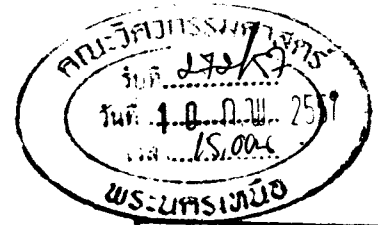 คณะวิศวกรรมศาสตร์
รับที่ 272/57
วันที่ 10 ก.พ. 2557
เวลา 15.00น
พระนครเหนือ